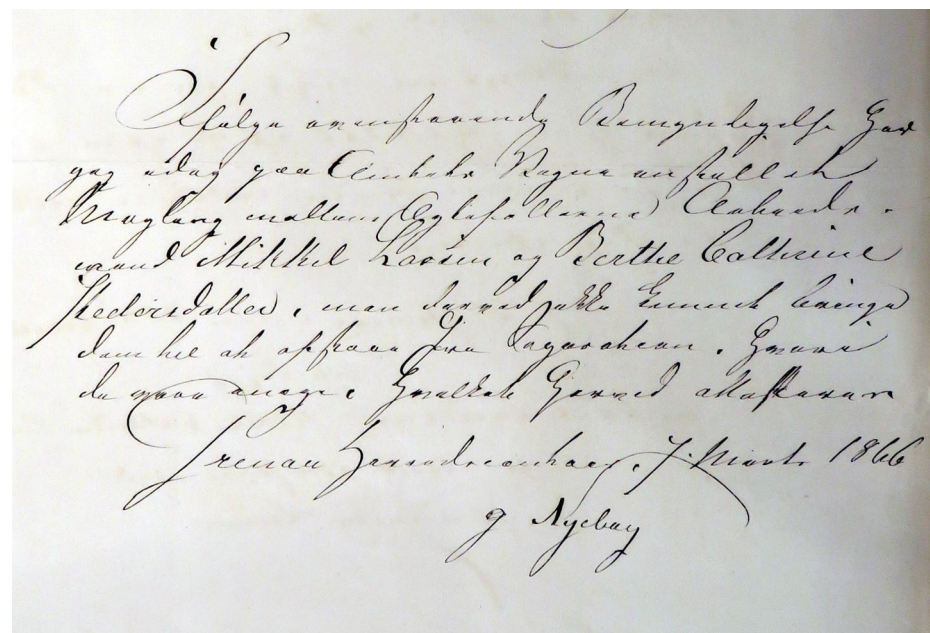 Ifølge ovenstaaende Bemyndigelse har
jeg idag paa Embeds Vegne anstillet
Mægling mellem Ægtefællerne Arbeids-
mand Mikkel Larsen og Berthe Cathrine
Pedersdatter, men derved ikke kunnet bringe
dem til at afstaae fra Separation, hvori
de vare enige, hvilket herved attesteres
Grenaa Herredscontoir, 7. Marts 1866